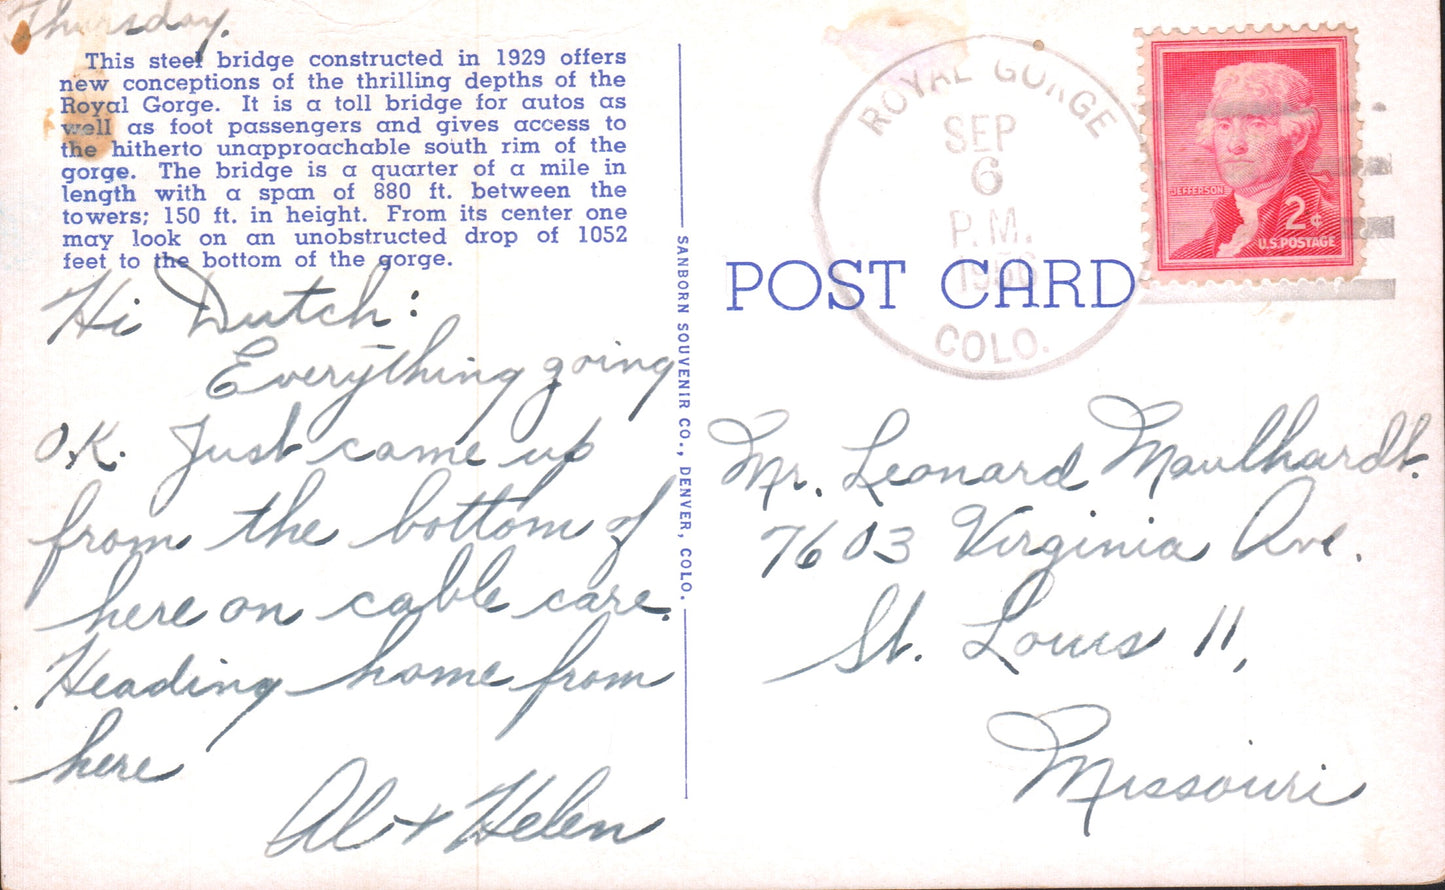 Thursday.
This steel bridge constructed in 1929 offers
new conceptions of the thrilling depths of the
Royal Gorge. It is a toll bridge for autos as
well as foot passengers and gives access to
the hitherto unapproachable south rim of the
gorge. The bridge is a quarter of a mile in
length with a span of 880 ft. between the
towers; 150 ft. in height. From its center one
may look on an unobstructed drop of 1052
feet to the bottom of the gorge.
Hi Dutch:
Everything going
O.K. Just came up
from the bottom of
here on cable care.
Heading home from
here
Al + Helen
SANBORN SOUVENIR CO., DENVER, COLO.
ROYAL GORGE
SEP
6
P.M.
1956
COLO.
JEFFERSON
2¢
U.S. POSTAGE
POST CARD
Mr. Leonard Maulhardt.
7603 Virginia Ave.
St. Louis 11,
Missouri